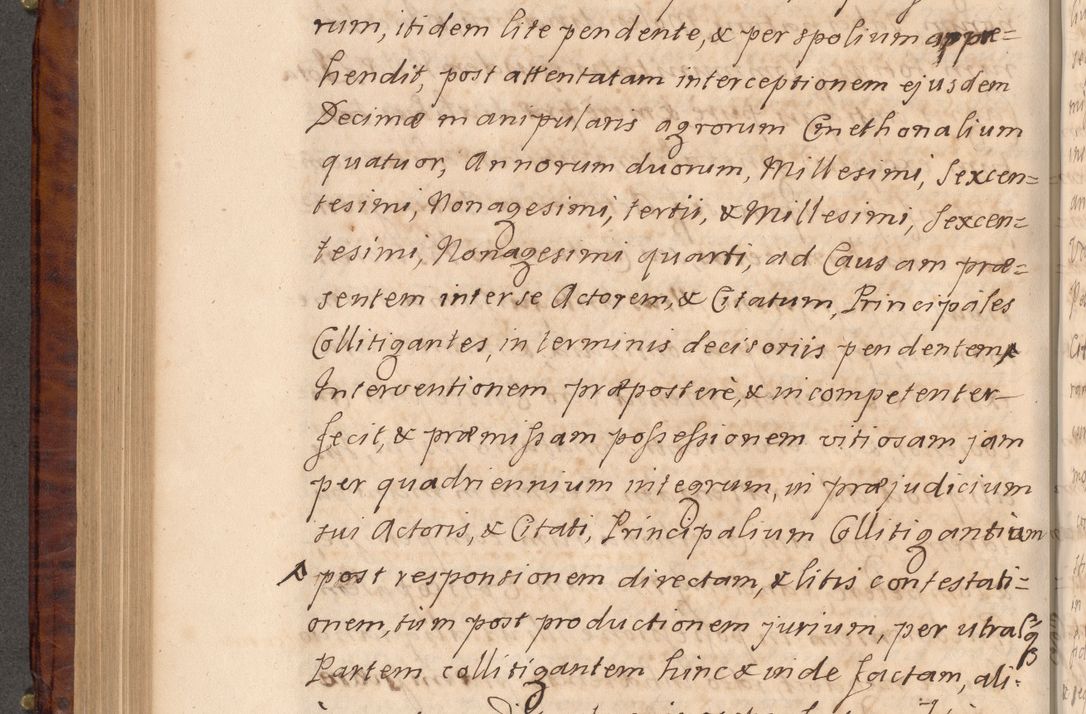 rum, itidem lite pendente, & per spolium appræ=
hendit, post attentatam interceptionem ejusdem
Decimæ manipularis agrorum Cmethonalium
quatuor, Annorum duorum, Millesimi, Sexcen=
tesimi, Nonagesimi, tertii, & Millesimi, Sexcen=
tesimi, Nonagesimi quarti, ad Causam præ=
sentem inter se Actorem, & Citatum, Principales
Collitigantes, in terminis decisoriis pendentem,
Interventionem præposterè, & incompetenter
fecit, & præmissam possessionem vitiosam jam
per quadriennium integrum, in præjudicium
sui Actoris, & Citati, Principalium Collitigantium
post responsionem directam, & litis contestati=
onem, tùm post productionem jurium, per utraq3
Partem collitigantem hinc & inde factam, ali=